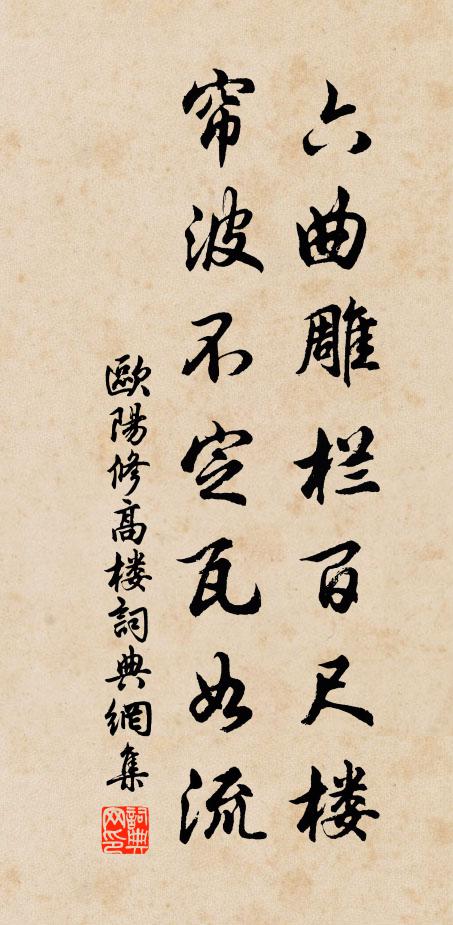 六曲雕栏百尺楼
帘波不定瓦如流
歐陽修高楼詞典網集
詞典网印